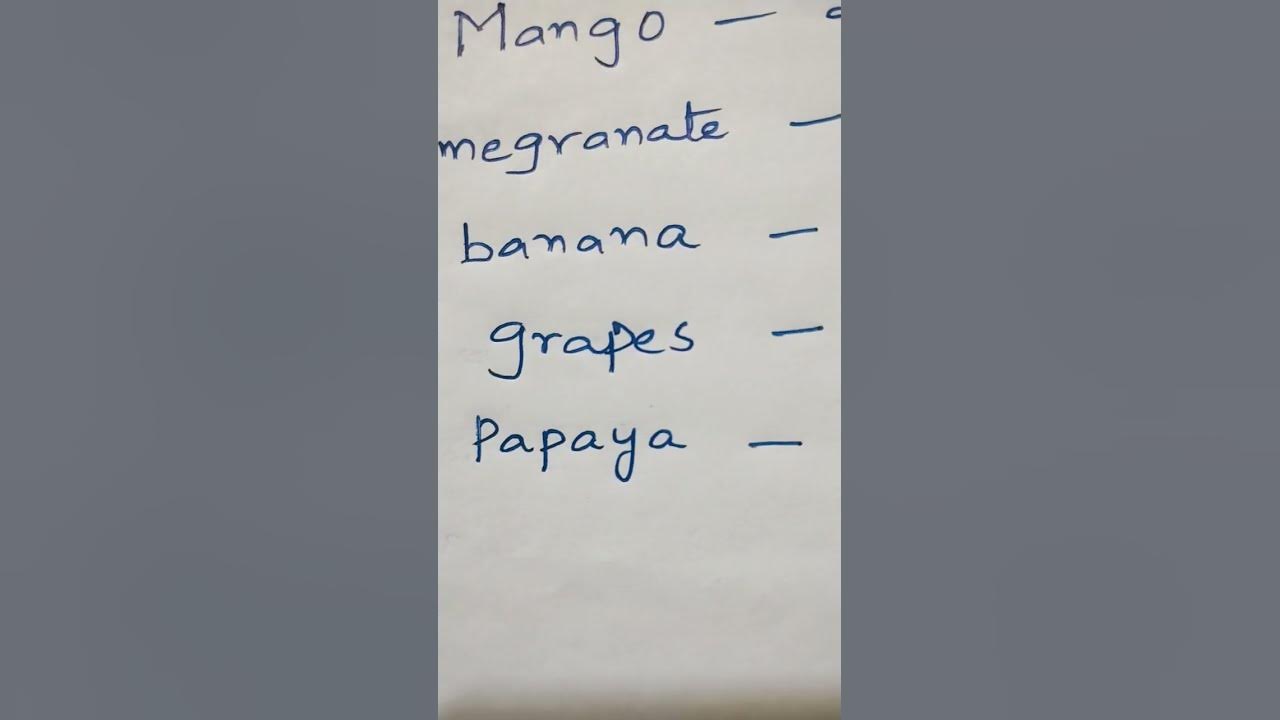 Mango —
megranate —
banana —
grapes —
Papaya —